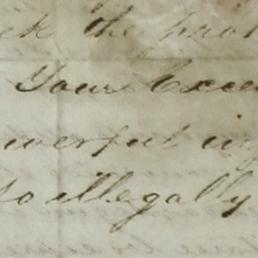 the
Your Exce
werful in
so illegally